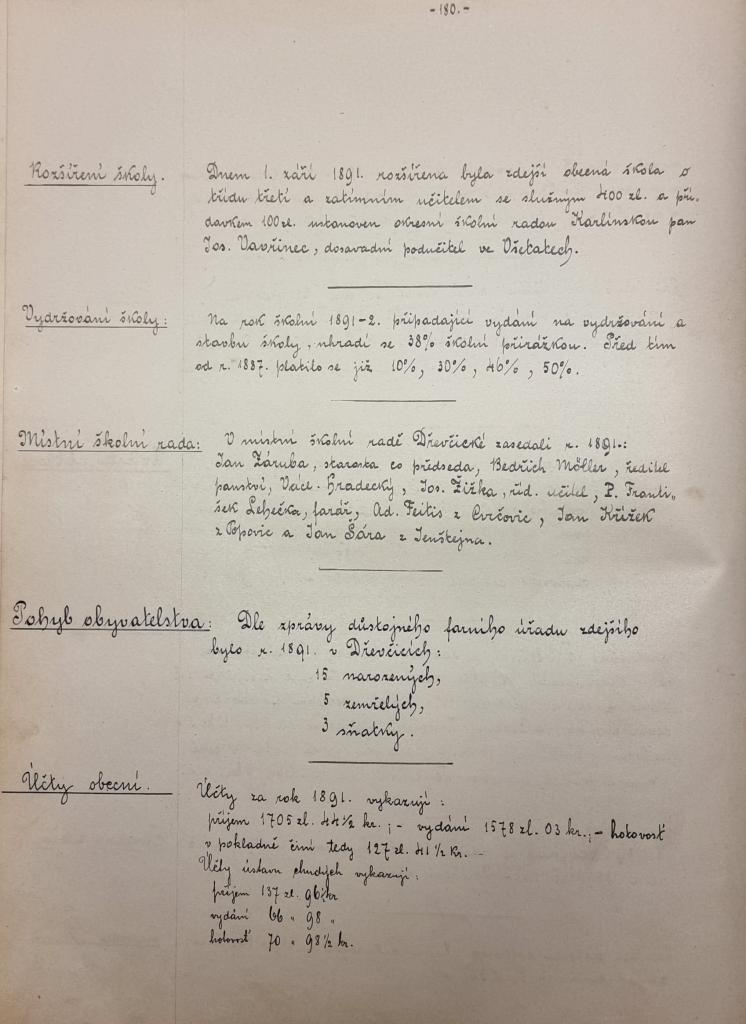 - 180. -
Rozšíření školy.
Dnem 1. září 1891. rozšířena byla zdejší obecná škola o
třídu třetí a zatímním učitelem se služným 400 zl. a pří-
davkem 100 zl. ustanoven okresní školní radou Karlínskou pan
Jos. Vavřinec, dosavadní podučitel ve Všetatech.
Vydržování školy:
Na rok školní 1891-2. připadající vydání na vydržování a
stavbu školy, uhradí se 38% školní přirážkou. Před tím
od r. 1887. platilo se již 10%, 30%, 46%, 50%.
Místní školní rada:
V místní školní radě Dřevčické zasedali r. 1891.:
Jan Záruba, starosta co předseda, Bedřich Möller, ředitel
panství, Václ. Hradecký, Jos. Žižka, říd. učitel, P. Franti-
šek Lehečka, farář, Ad. Feitis z Cvrčovic, Jan Křížek
z Popovic a Jan Šára z Jenštejna.
Pohyb obyvatelstva:
Dle zprávy důstojného farního úřadu zdejšího
bylo r. 1891. v Dřevčicích:
15 narozených,
5 zemřelých,
3 sňatky.
Účty obecní.
Účty za rok 1891. vykazují:
příjem 1705 zl. 44 1/2 kr.; - vydání 1578 zl. 03 kr.; - hotovosť
v pokladně činí tedy 127 zl. 41 1/2 Kr. -
Účty ústavu chudých vykazují:
příjem 137 zl. 96 1/2 kr
vydání 66 „ 98 „
hotovosť 70 „ 98 1/2 kr.